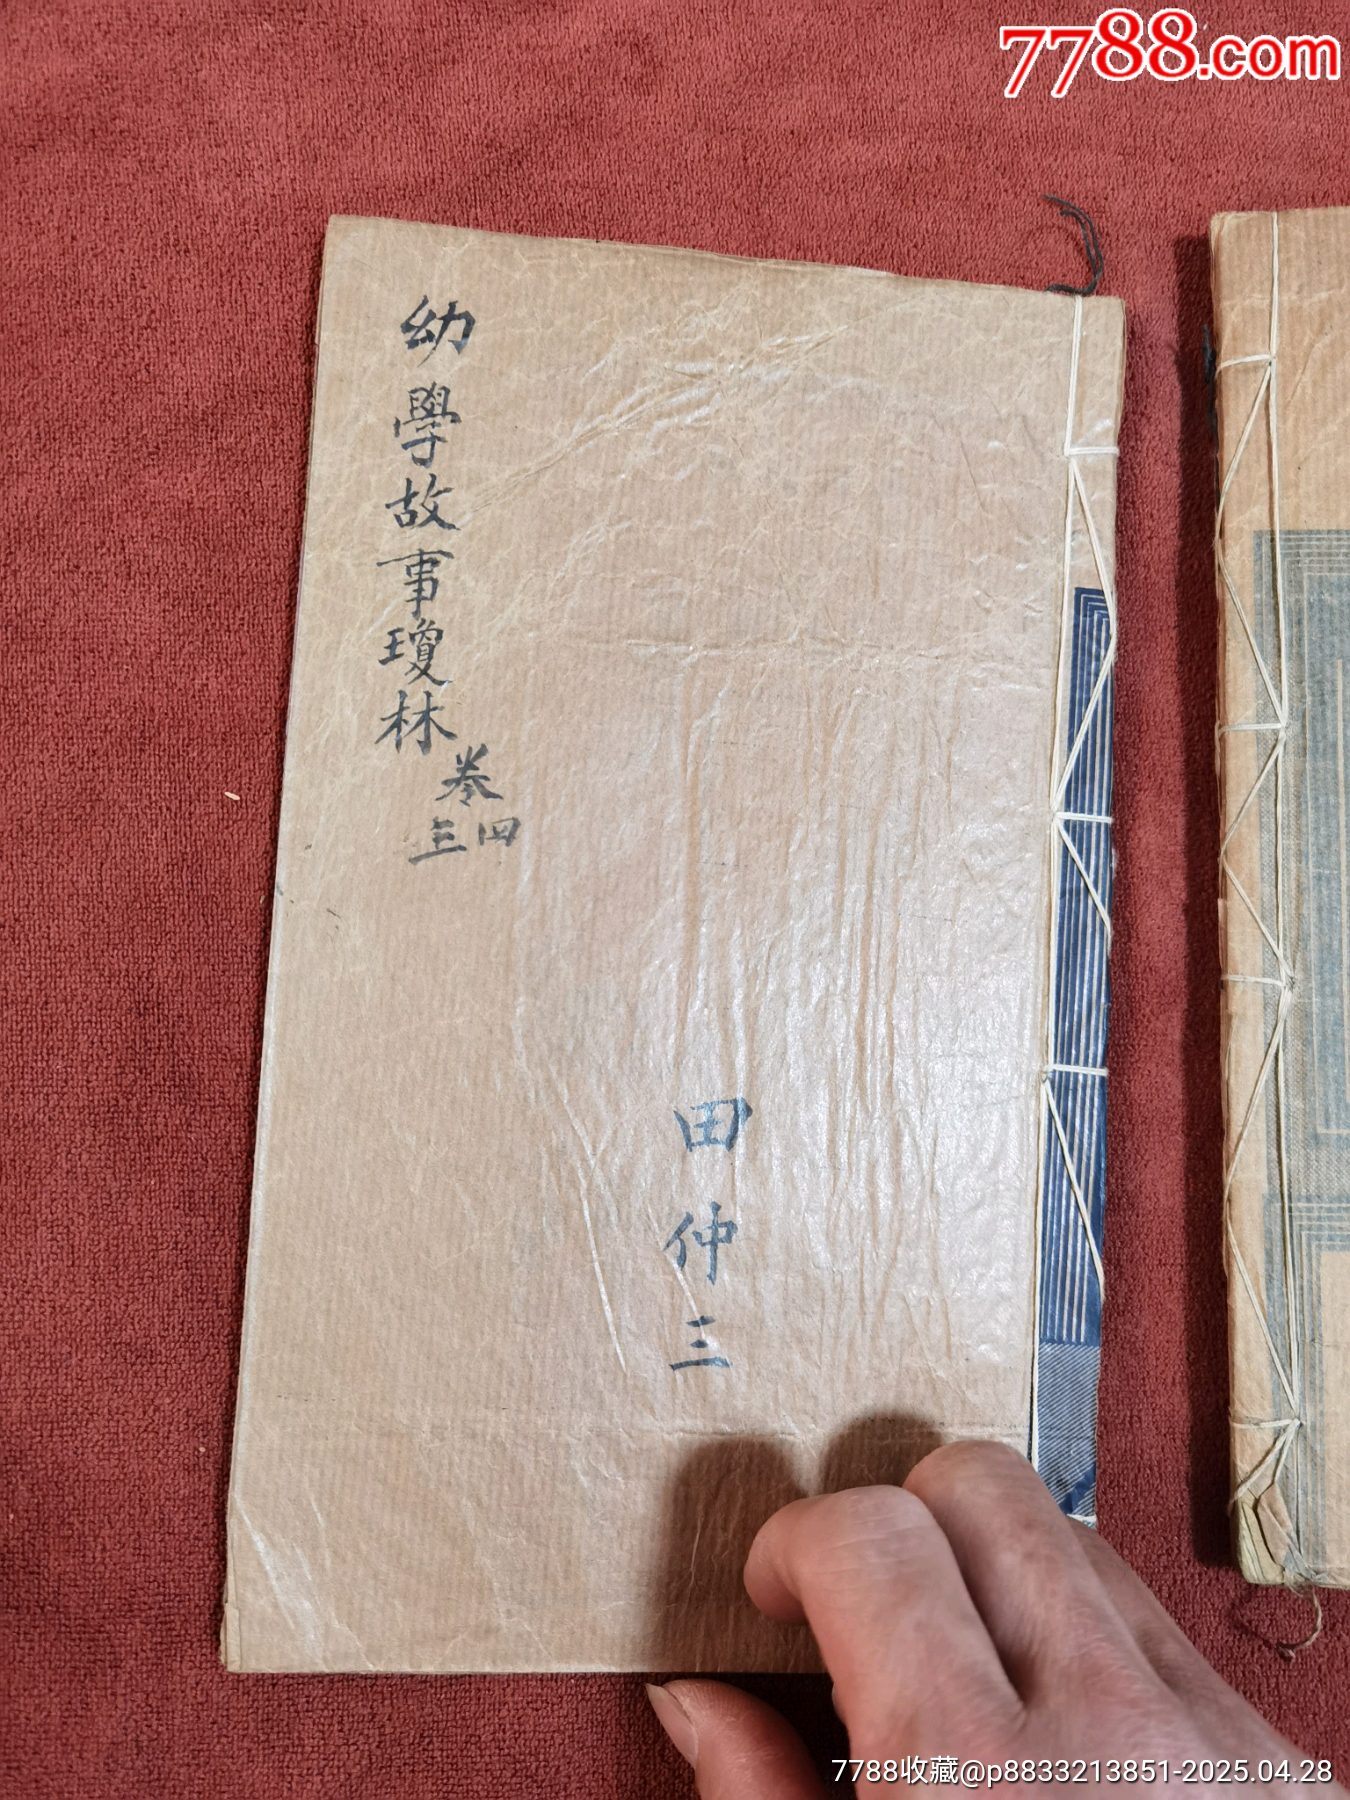 7788.com
幼學故事瓊林
卷
三四
田仲三
7788收藏@p8833213851-2025.04.28